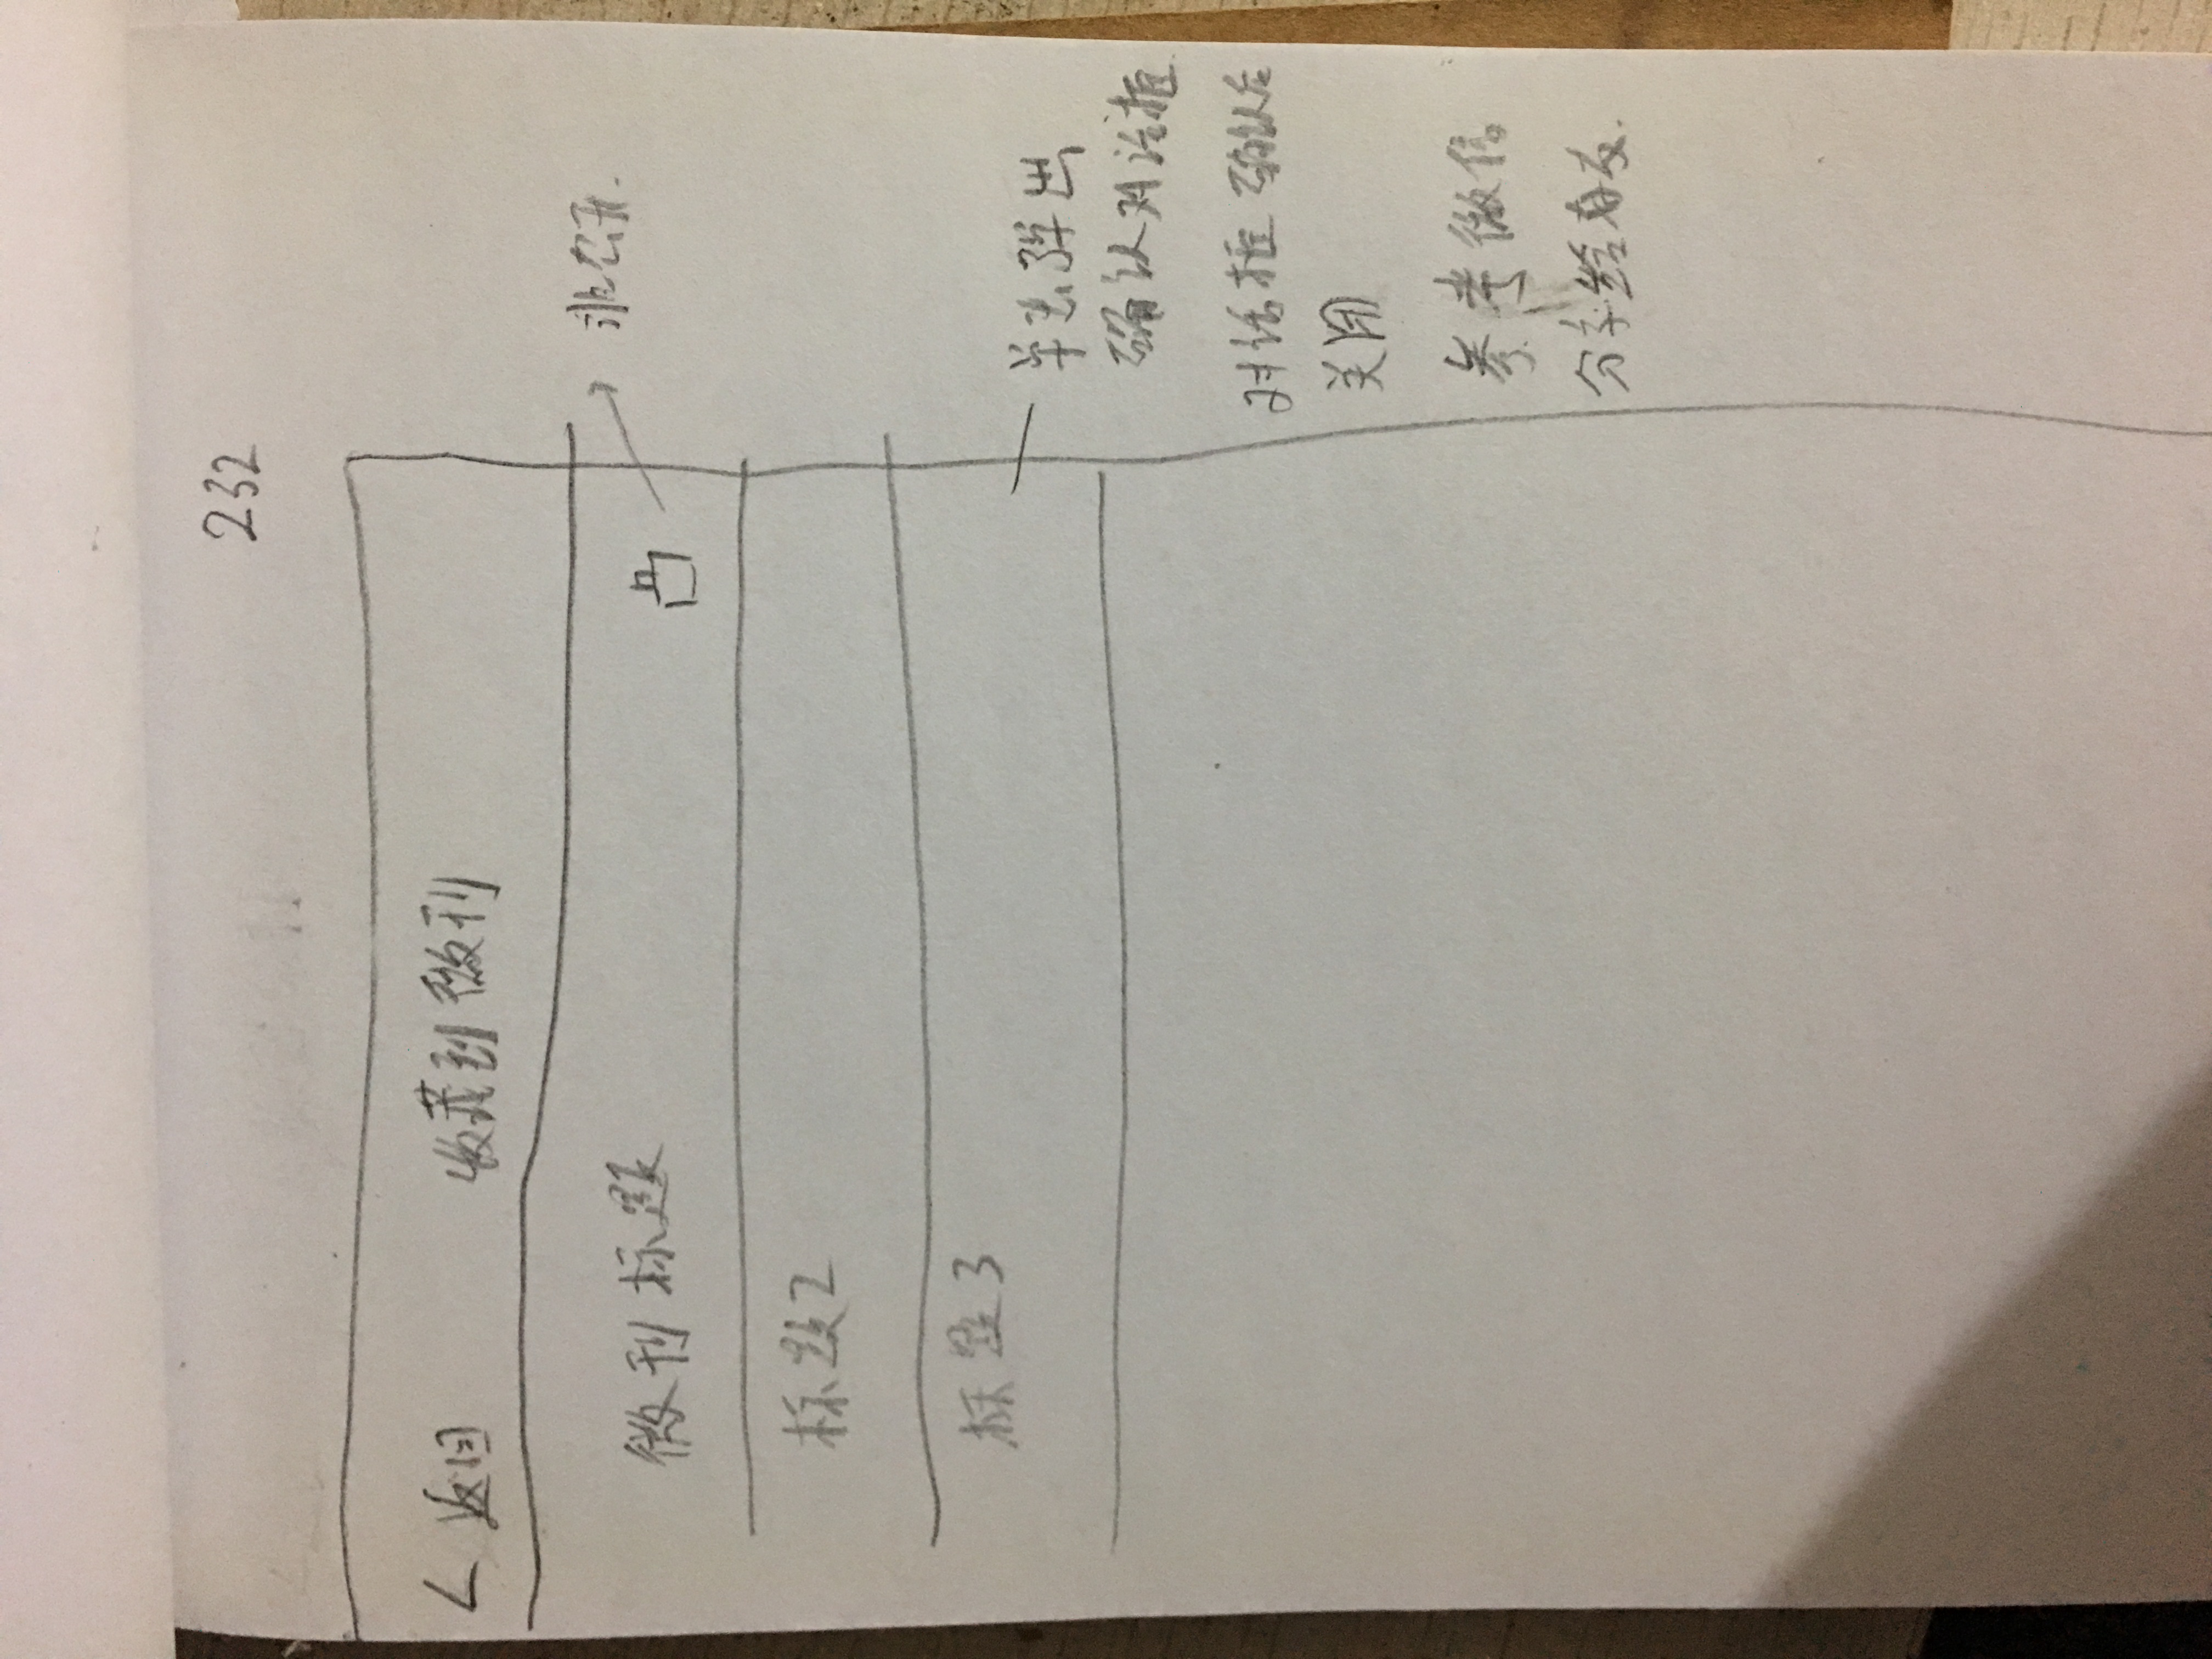 232
< 返回 收藏到微刊
非公开.
微刊标题
标题2
标题3
单击弹出
确认对话框
对话框确认后
关闭
参考微信
分享给朋友.